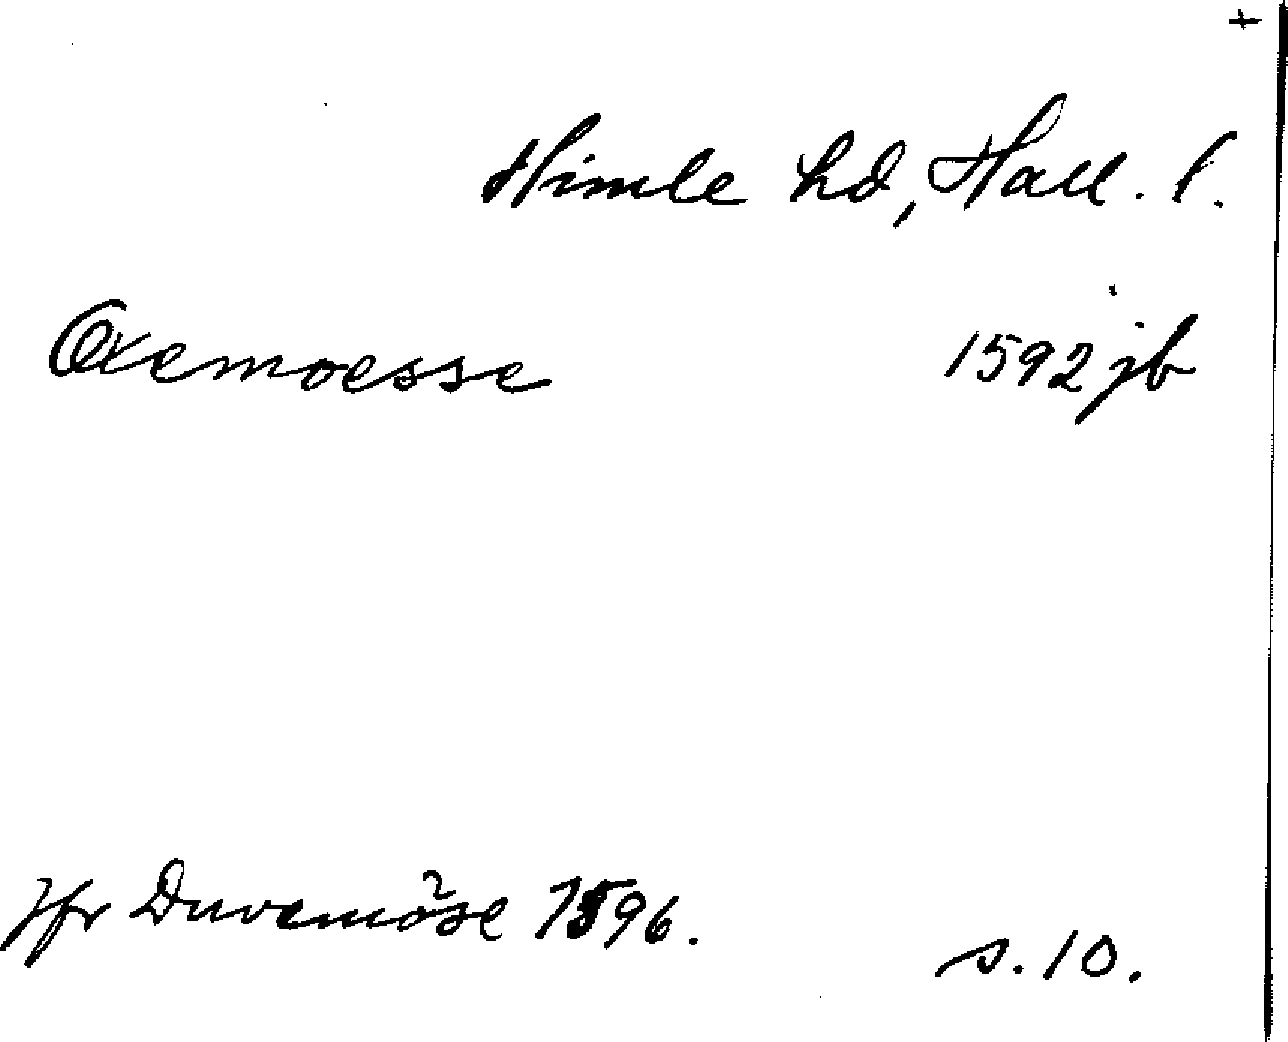 +
Himle hd, Hall. l.
Oxemoesse 1592 jb
Jfr Duvemöse 1596.
s. 10.